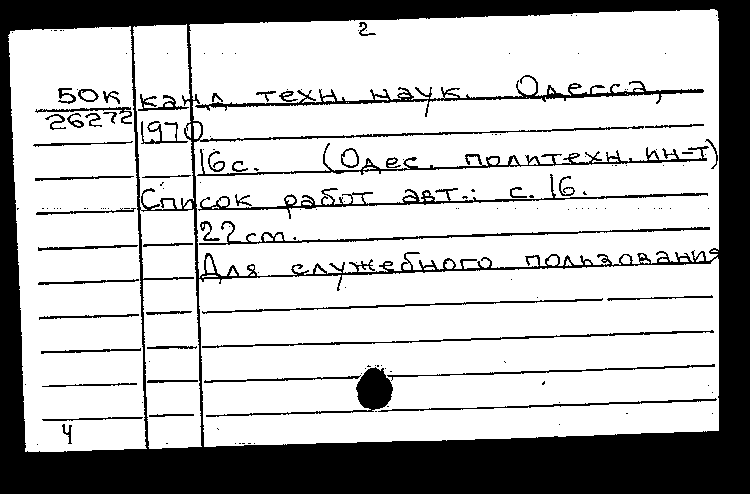 2
50к канд. техн. наук. Одесса,
26272 1970.
16с. (Одес. политехн. ин-т)
Список работ авт.: с. 16.
22см.
Для служебного пользования
4